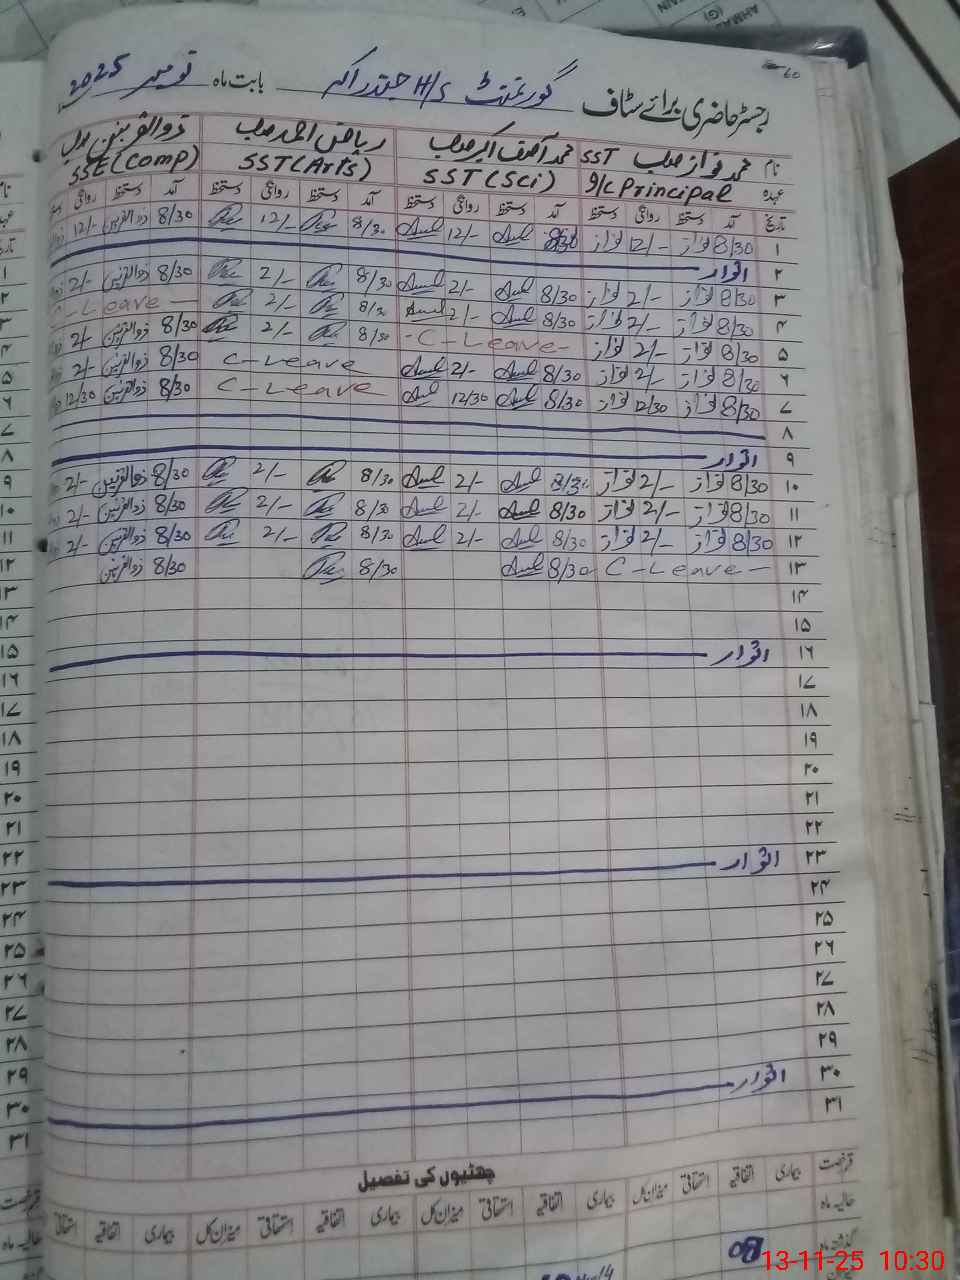 رجسٹر حاضری برائے سٹاف گورنمنٹ H/S جنڈراکہ بابت ماہ نومبر 2025
نام محمد نواز صاحب SST محمد آصف اکبر صاحب ریاض احمد صاحب ذوالقرنین صاحب
عہدہ I/C Principal SST (Sci) SST (Arts) SSE (Comp)
تاریخ آمد دستخط روانگی دستخط آمد دستخط روانگی دستخط آمد دستخط روانگی دستخط آمد دستخط روانگی
۱ 8/30 نواز 12/- نواز 8/30 12/- 8/30 12/- 8/30 ذوالقرنین 12/-
۲ اتوار
۳ 8/30 نواز 2/- نواز 8/30 2/- 8/30 2/- 8/30 ذوالقرنین 2/-
۴ 8/30 نواز 2/- نواز 8/30 2/- 8/30 2/- C-Leave
۵ 8/30 نواز 2/- نواز C-Leave 8/30 2/- 8/30 ذوالقرنین 2/-
۶ 8/30 نواز 2/- نواز 8/30 2/- C-Leave 8/30 ذوالقرنین 2/-
۷ 8/30 نواز 12/30 نواز 8/30 12/30 C-Leave 8/30 ذوالقرنین 12/30
۸
۹ اتوار
۱۰ 8/30 نواز 2/- نواز 8/30 2/- 8/30 2/- 8/30 ذوالقرنین 2/-
۱۱ 8/30 نواز 2/- نواز 8/30 2/- 8/30 2/- 8/30 ذوالقرنین 2/-
۱۲ 8/30 نواز 2/- نواز 8/30 2/- 8/30 2/- 8/30 ذوالقرنین 2/-
۱۳ C-Leave 8/30 8/30 8/30 ذوالقرنین
۱۴
۱۵
۱۶ اتوار
۱۷
۱۸
۱۹
۲۰
۲۱
۲۲
۲۳ اتوار
۲۴
۲۵
۲۶
۲۷
۲۸
۲۹
۳۰ اتوار
۳۱
چھٹیوں کی تفصیل
قسم رخصت بیماری اتفاقیہ استحقاقی میزان کل بیماری اتفاقیہ استحقاقی میزان کل بیماری اتفاقیہ استحقاقی میزان کل بیماری اتفاقیہ استحقاقی
حالیہ ماہ
گذشتہ ماہ
13-11-25 10:30